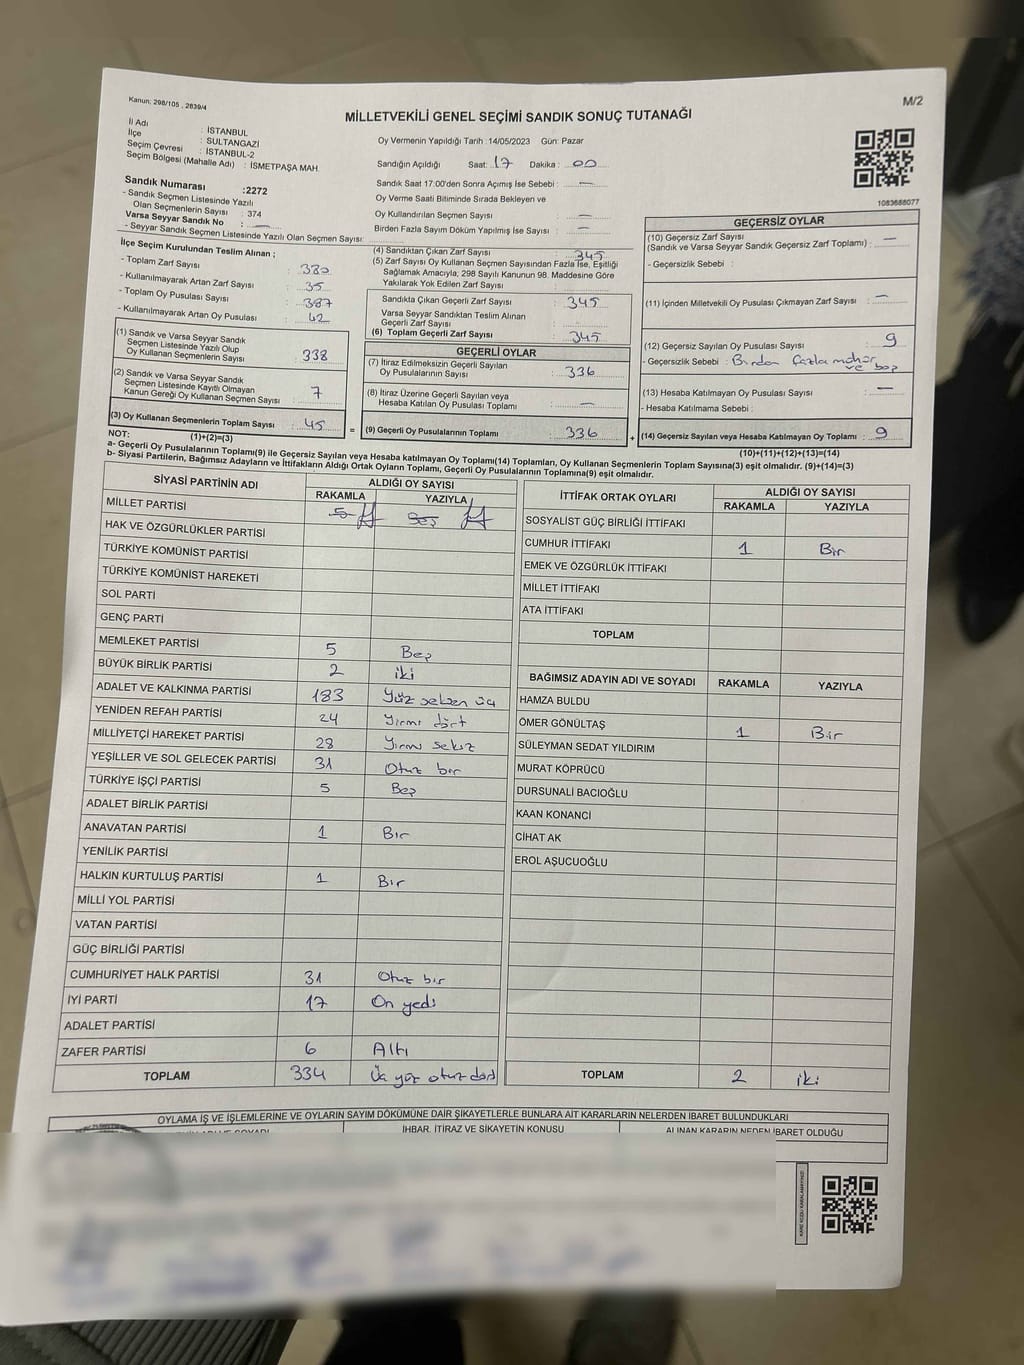 Kanun; 298/105 , 2839/4
M/2
MİLLETVEKİLİ GENEL SEÇİMİ SANDIK SONUÇ TUTANAĞI
İl Adı : İSTANBUL
İlçe : SULTANGAZİ
Seçim Çevresi : İSTANBUL-2
Seçim Bölgesi (Mahalle Adı) : İSMETPAŞA MAH.
Oy Vermenin Yapıldığı Tarih :14/05/2023 Gün: Pazar
Sandığın Açıldığı Saat: 17 Dakika : 00
Sandık Saat 17:00'den Sonra Açımış İse Sebebi : —
Oy Verme Saati Bitiminde Sırada Bekleyen ve
Oy Kullandırılan Seçmen Sayısı : —
Birden Fazla Sayım Döküm Yapılmış İse Sayısı : —
1083688077
Sandık Numarası :2272
- Sandık Seçmen Listesinde Yazılı
Olan Seçmenlerin Sayısı : 374
Varsa Seyyar Sandık No : —
- Seyyar Sandık Seçmen Listesinde Yazılı Olan Seçmen Sayısı:
İlçe Seçim Kurulundan Teslim Alınan ;
- Toplam Zarf Sayısı : 380
- Kullanılmayarak Artan Zarf Sayısı : 35
- Toplam Oy Pusulası Sayısı : 387
- Kullanılmayarak Artan Oy Pusulası : 42
(1) Sandık ve Varsa Seyyar Sandık
Seçmen Listesinde Yazılı Olup
Oy Kullanan Seçmenlerin Sayısı : 338
(2) Sandık ve Varsa Seyyar Sandık
Seçmen Listesinde Kayıtlı Olmayan
Kanun Gereği Oy Kullanan Seçmen Sayısı : 7
(3) Oy Kullanan Seçmenlerin Toplam Sayısı : 45
(1)+(2)=(3)
(4) Sandıktan Çıkan Zarf Sayısı : 345
(5) Zarf Sayısı Oy Kullanan Seçmen Sayısından Fazla İse, Eşitliği
Sağlamak Amacıyla; 298 Sayılı Kanunun 98. Maddesine Göre
Yakılarak Yok Edilen Zarf Sayısı :
Sandıkta Çıkan Geçerli Zarf Sayısı : 345
Varsa Seyyar Sandıktan Teslim Alınan
Geçerli Zarf Sayısı :
(6) Toplam Geçerli Zarf Sayısı : 345
GEÇERLİ OYLAR
(7) İtiraz Edilmeksizin Geçerli Sayılan
Oy Pusulalarının Sayısı : 336
(8) İtiraz Üzerine Geçerli Sayılan veya
Hesaba Katılan Oy Pusulası Toplamı : —
= (9) Geçerli Oy Pusulalarının Toplamı : 336
GEÇERSİZ OYLAR
(10) Geçersiz Zarf Sayısı
(Sandık ve Varsa Seyyar Sandık Geçersiz Zarf Toplamı) : —
- Geçersizlik Sebebi :
(11) İçinden Milletvekili Oy Pusulası Çıkmayan Zarf Sayısı : —
(12) Geçersiz Sayılan Oy Pusulası Sayısı : 9
- Geçersizlik Sebebi : Birden fazla mühür ve boş
(13) Hesaba Katılmayan Oy Pusulası Sayısı : —
- Hesaba Katılmama Sebebi :
+ (14) Geçersiz Sayılan veya Hesaba Katılmayan Oy Toplamı : 9
(10)+(11)+(12)+(13)=(14)
NOT:
a- Geçerli Oy Pusulalarının Toplamı(9) ile Geçersiz Sayılan veya Hesaba Katılmayan Oy Toplamı(14) Toplamları, Oy Kullanan Seçmenlerin Toplam Sayısına(3) eşit olmalıdır. (9)+(14)=(3)
b- Siyasi Partilerin, Bağımsız Adayların ve İttifakların Aldığı Ortak Oyların Toplamı, Geçerli Oy Pusulalarının Toplamına(9) eşit olmalıdır.
SİYASİ PARTİNİN ADI ALDIĞI OY SAYISI
RAKAMLA YAZIYLA
MİLLET PARTİSİ 5 Beş
HAK VE ÖZGÜRLÜKLER PARTİSİ
TÜRKİYE KOMÜNİST PARTİSİ
TÜRKİYE KOMÜNİST HAREKETİ
SOL PARTİ
GENÇ PARTİ
MEMLEKET PARTİSİ 5 Beş
BÜYÜK BİRLİK PARTİSİ 2 iki
ADALET VE KALKINMA PARTİSİ 183 Yüz seksen üç
YENİDEN REFAH PARTİSİ 24 Yirmi dört
MİLLİYETÇİ HAREKET PARTİSİ 28 Yirmi sekiz
YEŞİLLER VE SOL GELECEK PARTİSİ 31 Otuz bir
TÜRKİYE İŞÇİ PARTİSİ 5 Beş
ADALET BİRLİK PARTİSİ
ANAVATAN PARTİSİ 1 Bir
YENİLİK PARTİSİ
HALKIN KURTULUŞ PARTİSİ 1 Bir
MİLLİ YOL PARTİSİ
VATAN PARTİSİ
GÜÇ BİRLİĞİ PARTİSİ
CUMHURİYET HALK PARTİSİ 31 Otuz bir
İYİ PARTİ 17 On yedi
ADALET PARTİSİ
ZAFER PARTİSİ 6 Altı
TOPLAM 334 Üç yüz otuz dört
İTTİFAK ORTAK OYLARI ALDIĞI OY SAYISI
RAKAMLA YAZIYLA
SOSYALİST GÜÇ BİRLİĞİ İTTİFAKI
CUMHUR İTTİFAKI 1 Bir
EMEK VE ÖZGÜRLÜK İTTİFAKI
MİLLET İTTİFAKI
ATA İTTİFAKI
TOPLAM
BAĞIMSIZ ADAYIN ADI VE SOYADI RAKAMLA YAZIYLA
HAMZA BULDU
ÖMER GÖNÜLTAŞ 1 Bir
SÜLEYMAN SEDAT YILDIRIM
MURAT KÖPRÜCÜ
DURSUNALİ BACIOĞLU
KAAN KONANCİ
CİHAT AK
EROL AŞUCUOĞLU
TOPLAM 2 iki
OYLAMA İŞ VE İŞLEMLERİNE VE OYLARIN SAYIM DÖKÜMÜNE DAİR ŞİKAYETLERLE BUNLARA AİT KARARLARIN NELERDEN İBARET BULUNDUKLARI
İHBAR, İTİRAZ VE ŞİKAYETİN KONUSU
ALINAN KARARIN NEDEN İBARET OLDUĞU